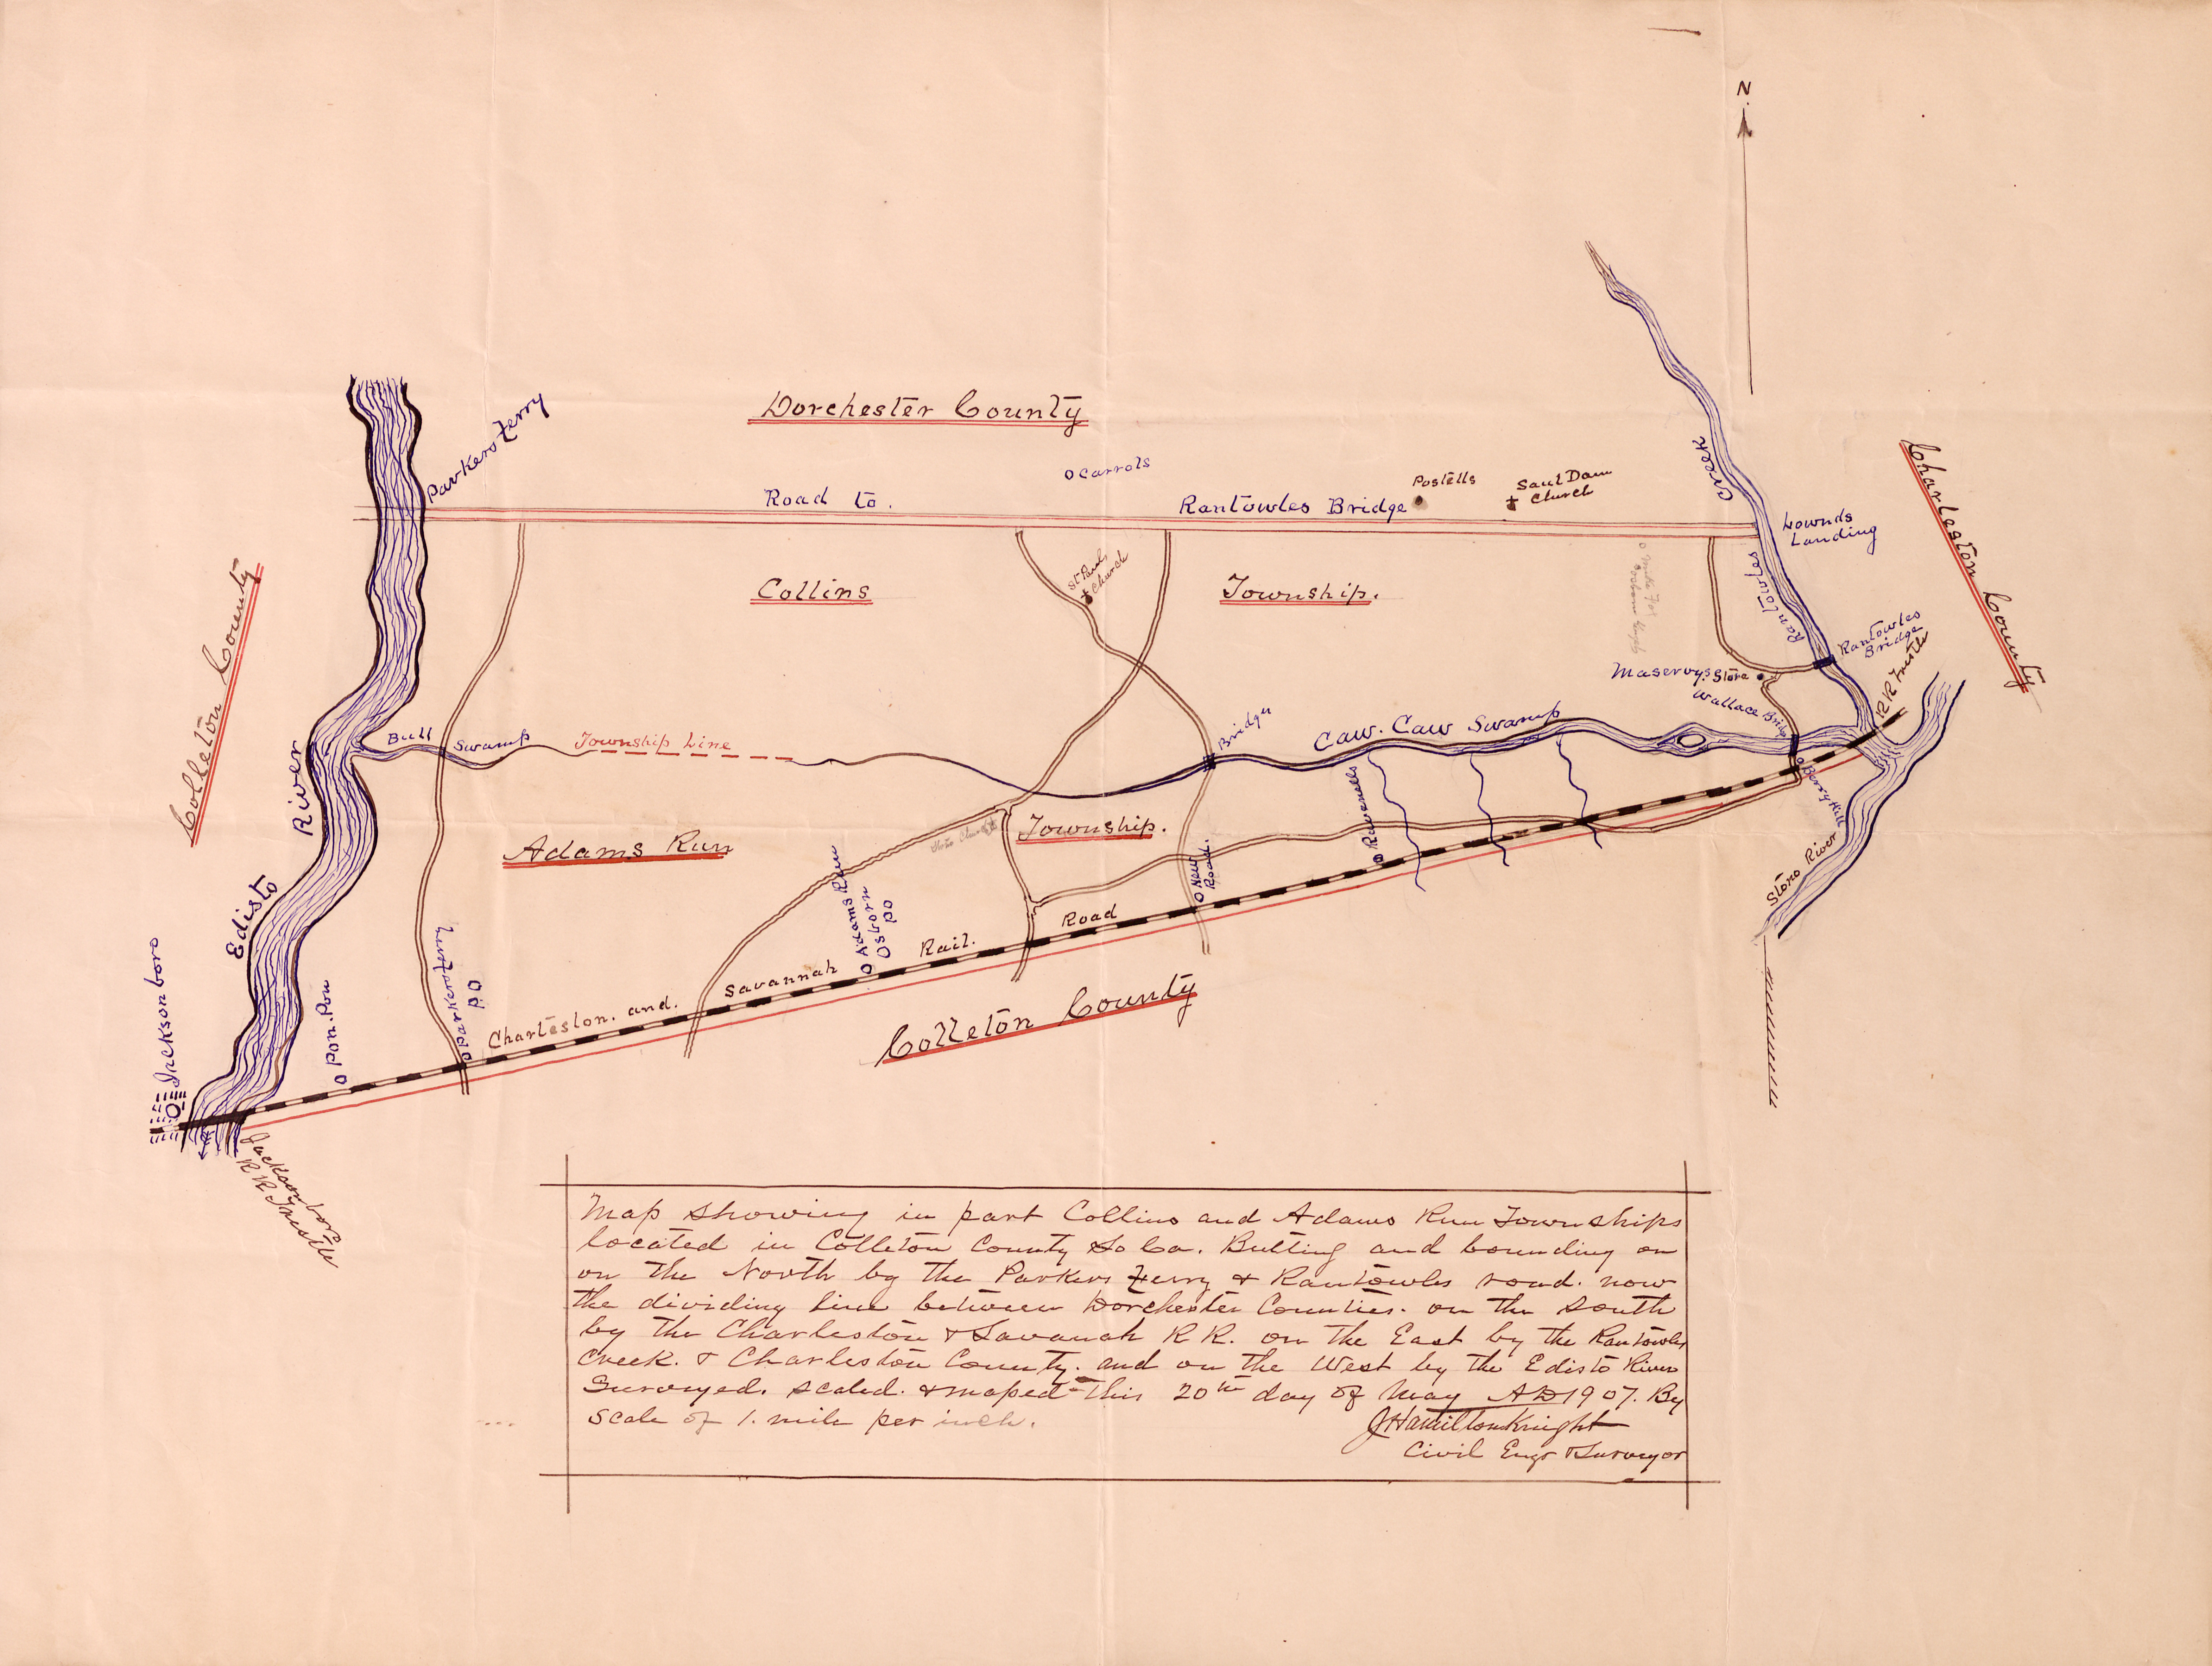 N.
Dorchester County
Parkers Ferry
Carrols
Road to.
Rantowles Bridge
Postells
Saul Dam
Church
Creek
Rantowles
Lownds
Landing
Charleston County
Colleton County
Collins
Township.
St Pauls
Church
Rantowles
Bridge
RR Trestle
Maservys Store
Wallace Bridge
Bull
Swamp
Township Line
Bridge
Caw. Caw Swamp
River
Edisto
Adams Run
Township.
Ravenells
Berry Hill
Stono River
New
Road.
Adams Run
Osborn
PO
Parkers Ferry
PO
Pon. Pon
Jacksonboro
Charleston. and.
Savannah
Rail.
Road
Colleton County
Jacksonboro
RR Trestle
Map showing in part Collins and Adams Run Townships
located in Colleton County So Ca. Butting and bounding on
on the North by the Parkers Ferry & Rantowles road. now
the dividing line between Dorchester Counties. on the South
by the Charleston & Savanah RR. on the East by the Rantowles
Creek. & Charleston County. and on the West by the Edisto River
Surveyed. scaled. & maped this 20th day of May AD 1907. By
Scale of 1. mile per inch.
J Hamilton Knight
Civil Engr & Surveyor